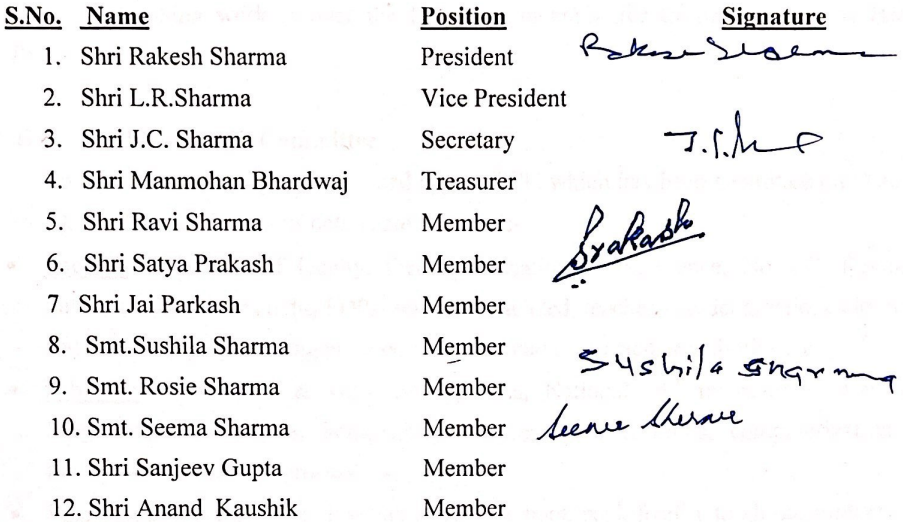 S.No. Name Position Signature
1. Shri Rakesh Sharma President Rakesh Sharma
2. Shri L.R.Sharma Vice President
3. Shri J.C. Sharma Secretary
4. Shri Manmohan Bhardwaj Treasurer
5. Shri Ravi Sharma Member
6. Shri Satya Prakash Member Prakash
7 Shri Jai Parkash Member
8. Smt.Sushila Sharma Member Sushila Sharma
9. Smt. Rosie Sharma Member
10. Smt. Seema Sharma Member Seema Sharma
11. Shri Sanjeev Gupta Member
12. Shri Anand Kaushik Member